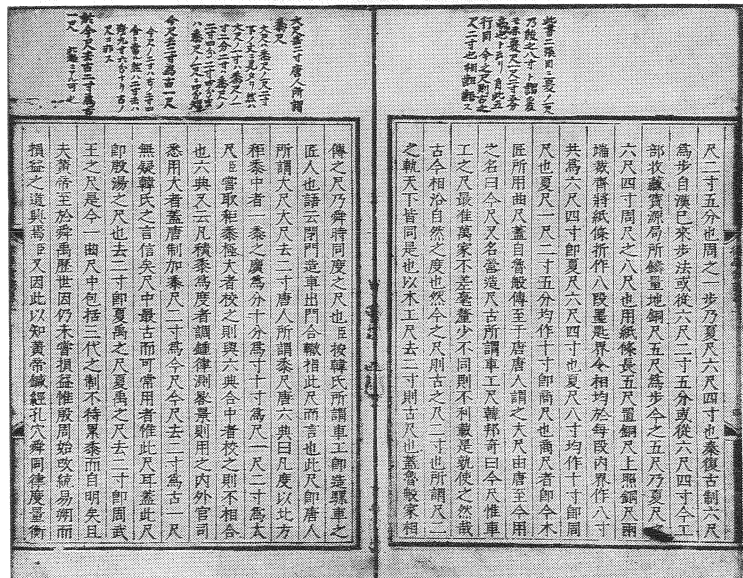 尺二寸五分也周之一步乃夏尺六尺四寸也秦復古制六尺
為步自漢已來步法或從六尺二寸五分或從六尺四寸今工
部收藏寶源局所鑄量地銅尺五尺為步今之五尺乃夏尺
六尺四寸周尺之八尺也用紙條長五尺置銅尺上照銅尺兩
端裁齊將紙條折作八段墨匙界令相均於每段內界作八寸
共為六尺四寸即夏尺六尺四寸也夏尺八寸均作十寸即周
尺也夏尺一尺二寸五分均作十寸即商尺也商尺者即今木
匠所用曲尺蓋自魯般傳至于唐唐人謂之大尺由唐至今用
之名曰今尺又名營造尺古所謂車工尺韓邦奇曰今尺惟車
工之尺最准萬家不差毫釐少不同則不利載是孰使之然哉
古今相沿自然之度也然今之尺則古之尺二寸也所謂尺二
之軌天下皆同是也以木工尺去二寸則古尺也蓋魯般家相
大尺去二寸唐人所謂
黍尺
今尺去二寸為古一尺
傳之尺乃舜時同度之尺也臣按韓氏所謂車工即造騾車之
匠人也語云閉門造車出門合轍相此尺而言也此尺即唐人
所謂大尺大尺去二寸唐人所謂黍尺唐六典曰凡度以北方
秬黍中者一黍之廣為分十分為寸十寸為尺一尺二寸為大
尺臣嘗取秬黍極大者校之則與六典合中者校之則不相合
也六典又云凡積黍為度者調鍾律測晷景則用之內外官司
悉用大者蓋唐制加黍尺二寸為今尺今尺去二寸為古一尺
無疑韓氏之言信矣尺中最古而可常用者惟此尺耳蓋此尺
即殷湯之尺也去二寸即夏禹之尺夏禹之尺去二寸即周武
王之尺是今一曲尺中包括三代之制不待累黍而自明矣且
夫黃帝至於舜禹歷世因仍未嘗損益惟殷周始改統易朔而
損益之道興焉臣又因此以知黃帝鍼經孔穴舜同律度量衡